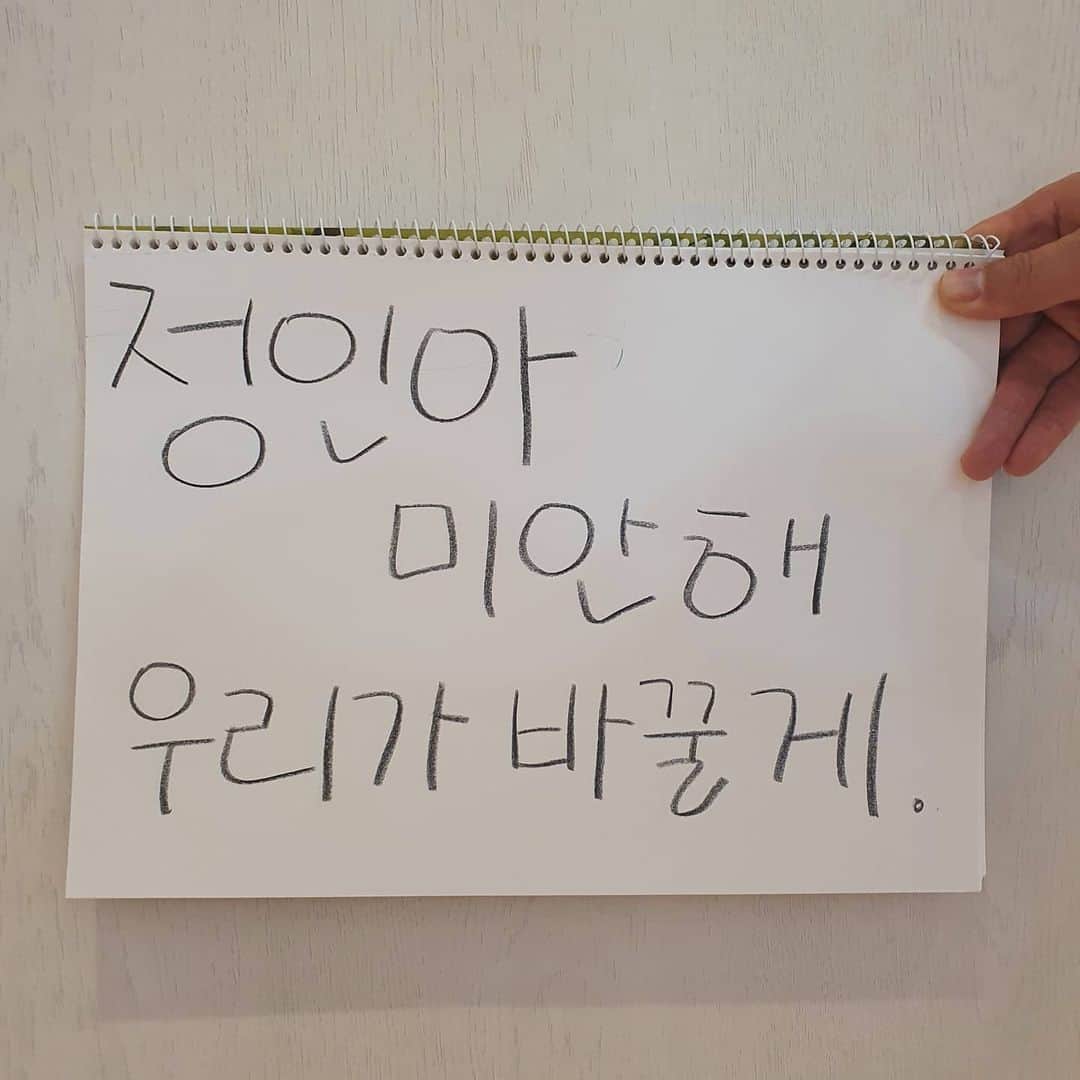 정인아
미안해
우리가 바꿀게.